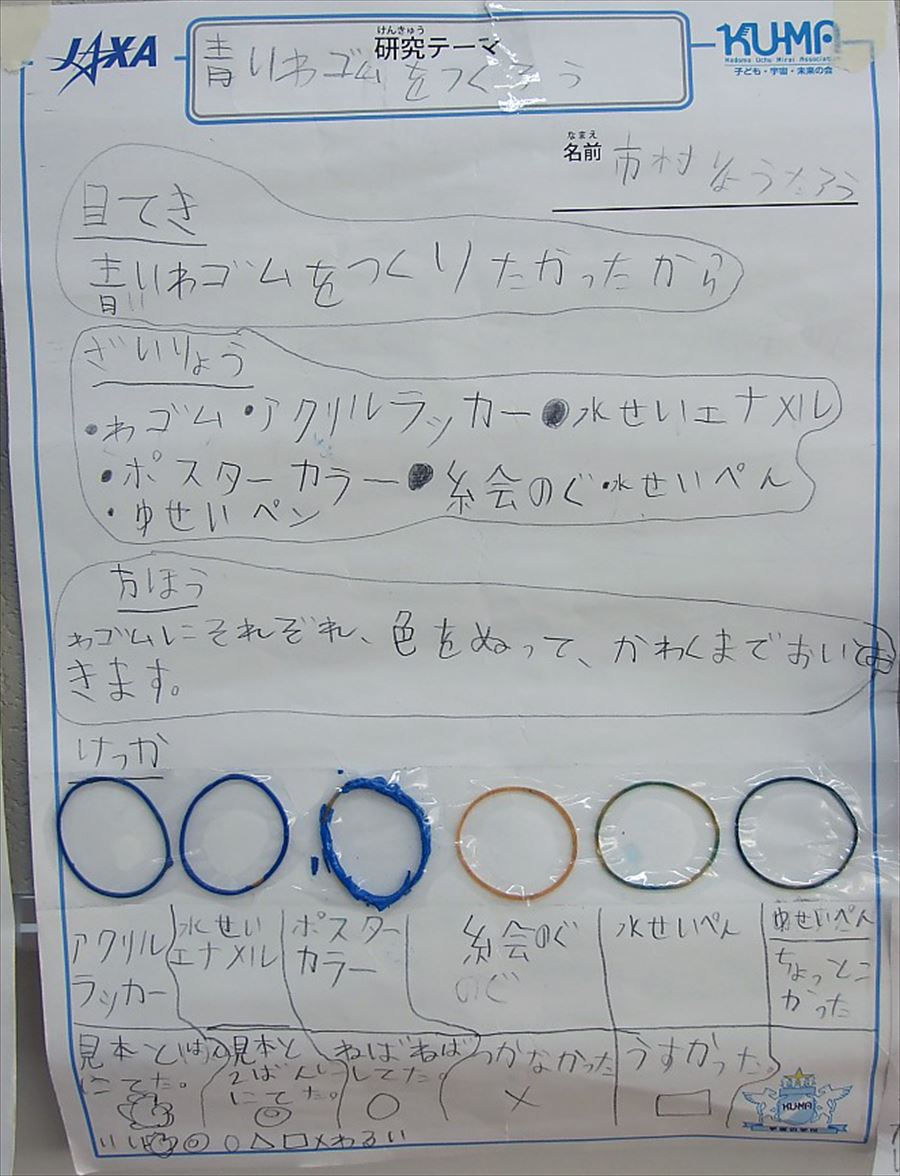 JAXA
けんきゅう
研究テーマ
青いわゴムをつくろう
KU-MA
Kodomo Uchu Mirai Association
子ども・宇宙・未来の会
なまえ
名前
市村りょうたろう
目てき
青いわゴムをつくりたかったから
ざいりょう
・わゴム・アクリルラッカー●水せいエナメル
・ポスターカラー●絵のぐ・水せいぺん
・ゆせいペン
方ほう
わゴムにそれぞれ、色をぬって、かわくまでおいてお
きます。
けっか
アクリル
ラッカー
水せい
エナメル
ポスター
カラー
絵のぐ
のぐ
水せいぺん
ゆせいぺん
ちょっとこ
かった
見本と
にてた。
見本と
2ばんに
にてた。
◎
ねばねば
してた。
○
つかなかった
×
うすかった。
□
いい ◎○△□×わるい
KU-MA